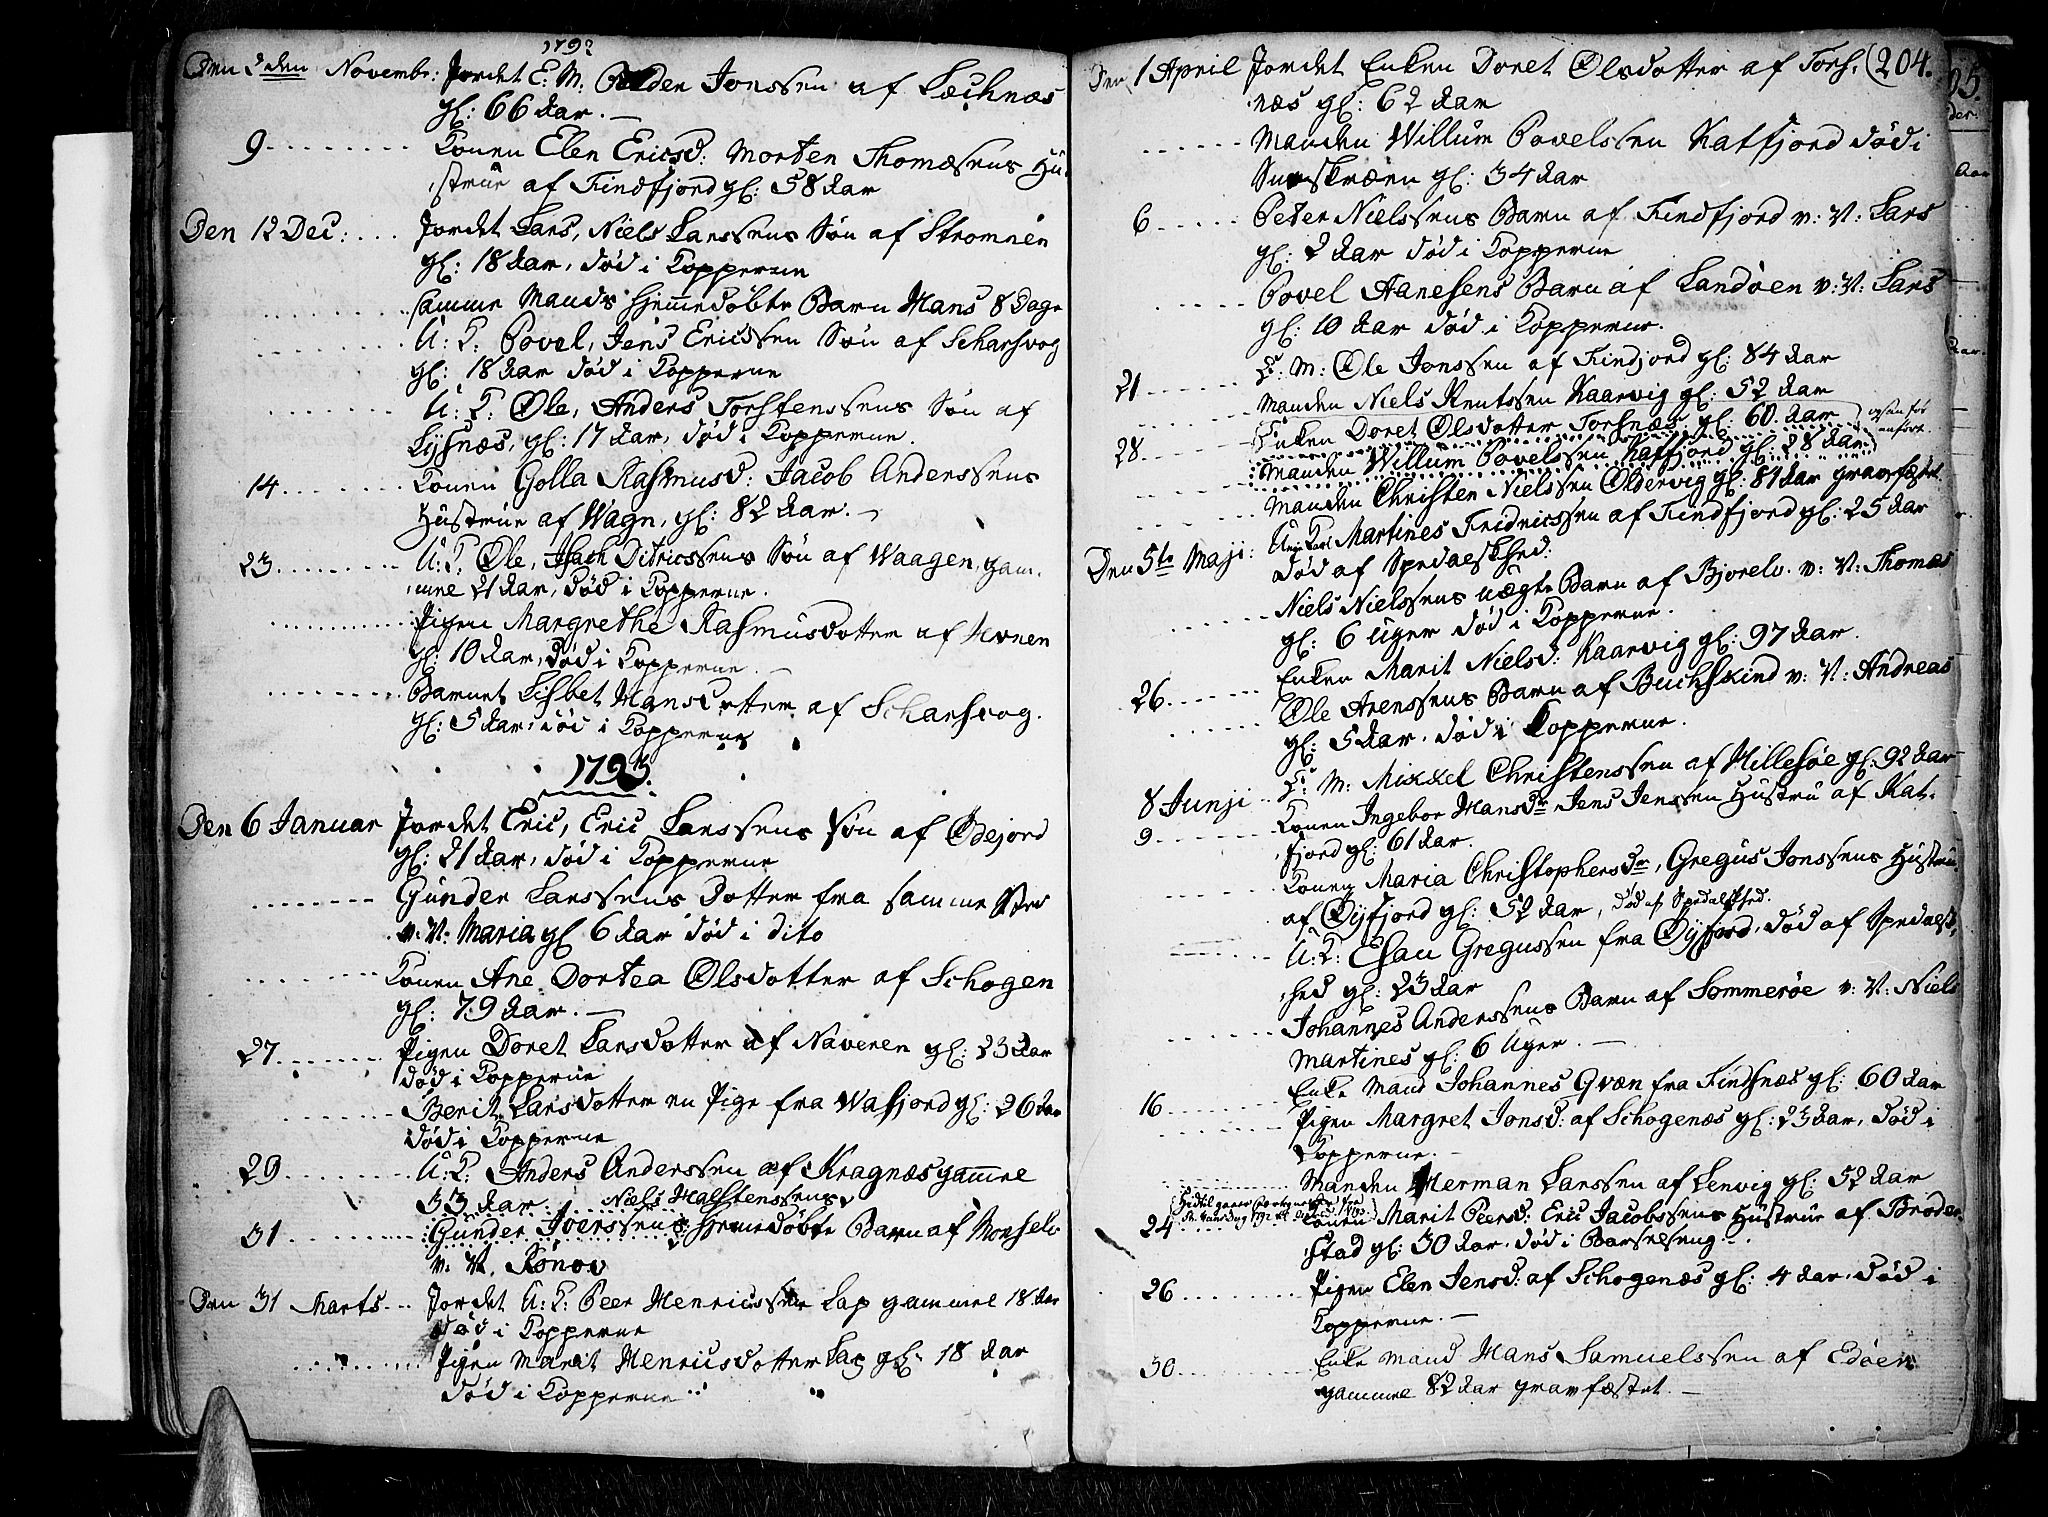 1792
Den 2den Novembr: Jordet E. M. Peder Jonssen af Lechnæs
gl: 66 Aar. —
9 Konen Elen Ericsd: Morten Thomæsens Hu
strue af Findfjord gl: 58 Aar
Den 12 Dec: Jordet Lars, Niels Larssens Søn af Stromnen
gl: 18 Aar, død i Kopperne
samme Mands hjemmedøbte Barn Hans 8 Dage
U: K: Povel, Jens Ericssen Søn af Scharsvog
gl: 18 Aar død i Kopperne
U: K: Ole, Anders Torstenssens Søn af
Lysnæs, gl: 17 Aar, død i Kopperne.
14 Konen Golla Rasmusd: Jacob Anderssens
Hustrue af Wagn, gl: 82 Aar. —
23 U: K: Ole, Isach Ditricssens Søn af Waagen, gam-
mel 21 Aar, død i Kopperne.
Pigen Margrethe Rasmusdotter af Hvnen
gl: 10 Aar, død i Kopperne. —
Barnet Lisbet Hansdotter af Scharsvog.
gl: 5 Aar, død i Kopperne
1793.
Den 6 Januar Jordet Eric, Eric Larssens søn af Ødejord
gl: 21 Aar, død i Kopperne
Günder Larssens Dotter fra samme Sted
v: N: Maria gl 6 Aar død i dito
Konen Ane Dortea Olsdotter af Schogen
gl: 79 Aar. —
27 Pigen Doret Larsdotter af Naveren gl: 23 Aar
død i Kopperne
Berit Larsdotter en Pige fra Wasjord gl: 26 Aar
død i Kopperne
29 U: K: Anders Anderssen af Kragnæs gammel
33 Aar. Niels Halstenssens
31 Günder Joerssens hjemmedøbte Barn af Monselv
v: N. Rønov
Den 31 Marts Jordet U: K: Peer Henricssen Lap gammel 18 Aar
død i Kopperne
Pigen Marit Henricsdotter Lap gl: 18 Aar
død i Kopperne
Den 1 April Jordet Enken Doret Olsdotter af Tors- (204.
næs gl: 62 Aar
Manden Willum Povelssen Katfjord død i
gl: 34 Aar
6 Peter Nielssens Barn af Findfjord v: N: Lars
gl: 2 Aar død i Kopperne
Povel Hanesens Barn af Sandøen v: N: Lars
gl: 10 Aar død i Kopperne.
21 E: M: Ole Jonssen af Findjord gl: 84 Aar
Manden Niels Knutssen Kaarvig gl: 52 Aar
28 Enken Doret Olsdotter Torsnæs gl: 60 Aar
Manden Willum Povelssen Katfjord gl: 28 Aar
Manden Christen Nielssen Oldervig gl: 81 Aar gravfæstet.
Den 5te Maji: Ung Karl Martines Fridricssen af Findfjord gl: 25 Aar
død af Spedalskhed:
Niels Nielssens uægte Barn af Bjorelv. v: N: Thomas
gl: 6 Uger død i Kopperne.
26 Enken Marit Nielsd: Kaarvig gl: 97 Aar.
Ole Arenssens Barn af Buchskind v: N: Andreas
gl: 5 Aar. død i Kopperne.
8 Junji E: M: Mikkel Christenssen af Hillesøe gl: 92 Aar
9 Konen Ingebor Hansdr Jens Jenssen Hustru af Kat-
fjord gl: 61 Aar.
Konen Maria Christophersdr, Gregus Jonssens Hustru
af Øyfjord gl: 52 Aar, død af Spedalskhed.
U: K: Esau Gregussen fra Øyfjord, død af Spedalsk-
hed gl: 23 Aar
Johannes Anderssens Barn af Sommerøe v: N: Niels
Martines gl: 6 Uger. —
16 Enke Mand Johannes Qvæn fra Findsnæs gl: 60 Aar
Pigen Margret Jonsd: af Schogenæs gl: 23 Aar, død i
Kopperne. —
Manden Herman Larssen af Lenvig gl: 52 Aar
24 Konen Marit Peersd: Eric Jacobssens Hustrue af Broder-
stad gl: 30 Aar, død i Barselseng. —
26 Pigen Elen Jensd: af Schogenæs gl: 4 Aar, død i
Kopperne. —
30 Enke Mand Hans Samuelssen af Edøen
gammel 82 Aar gravfæstet. —